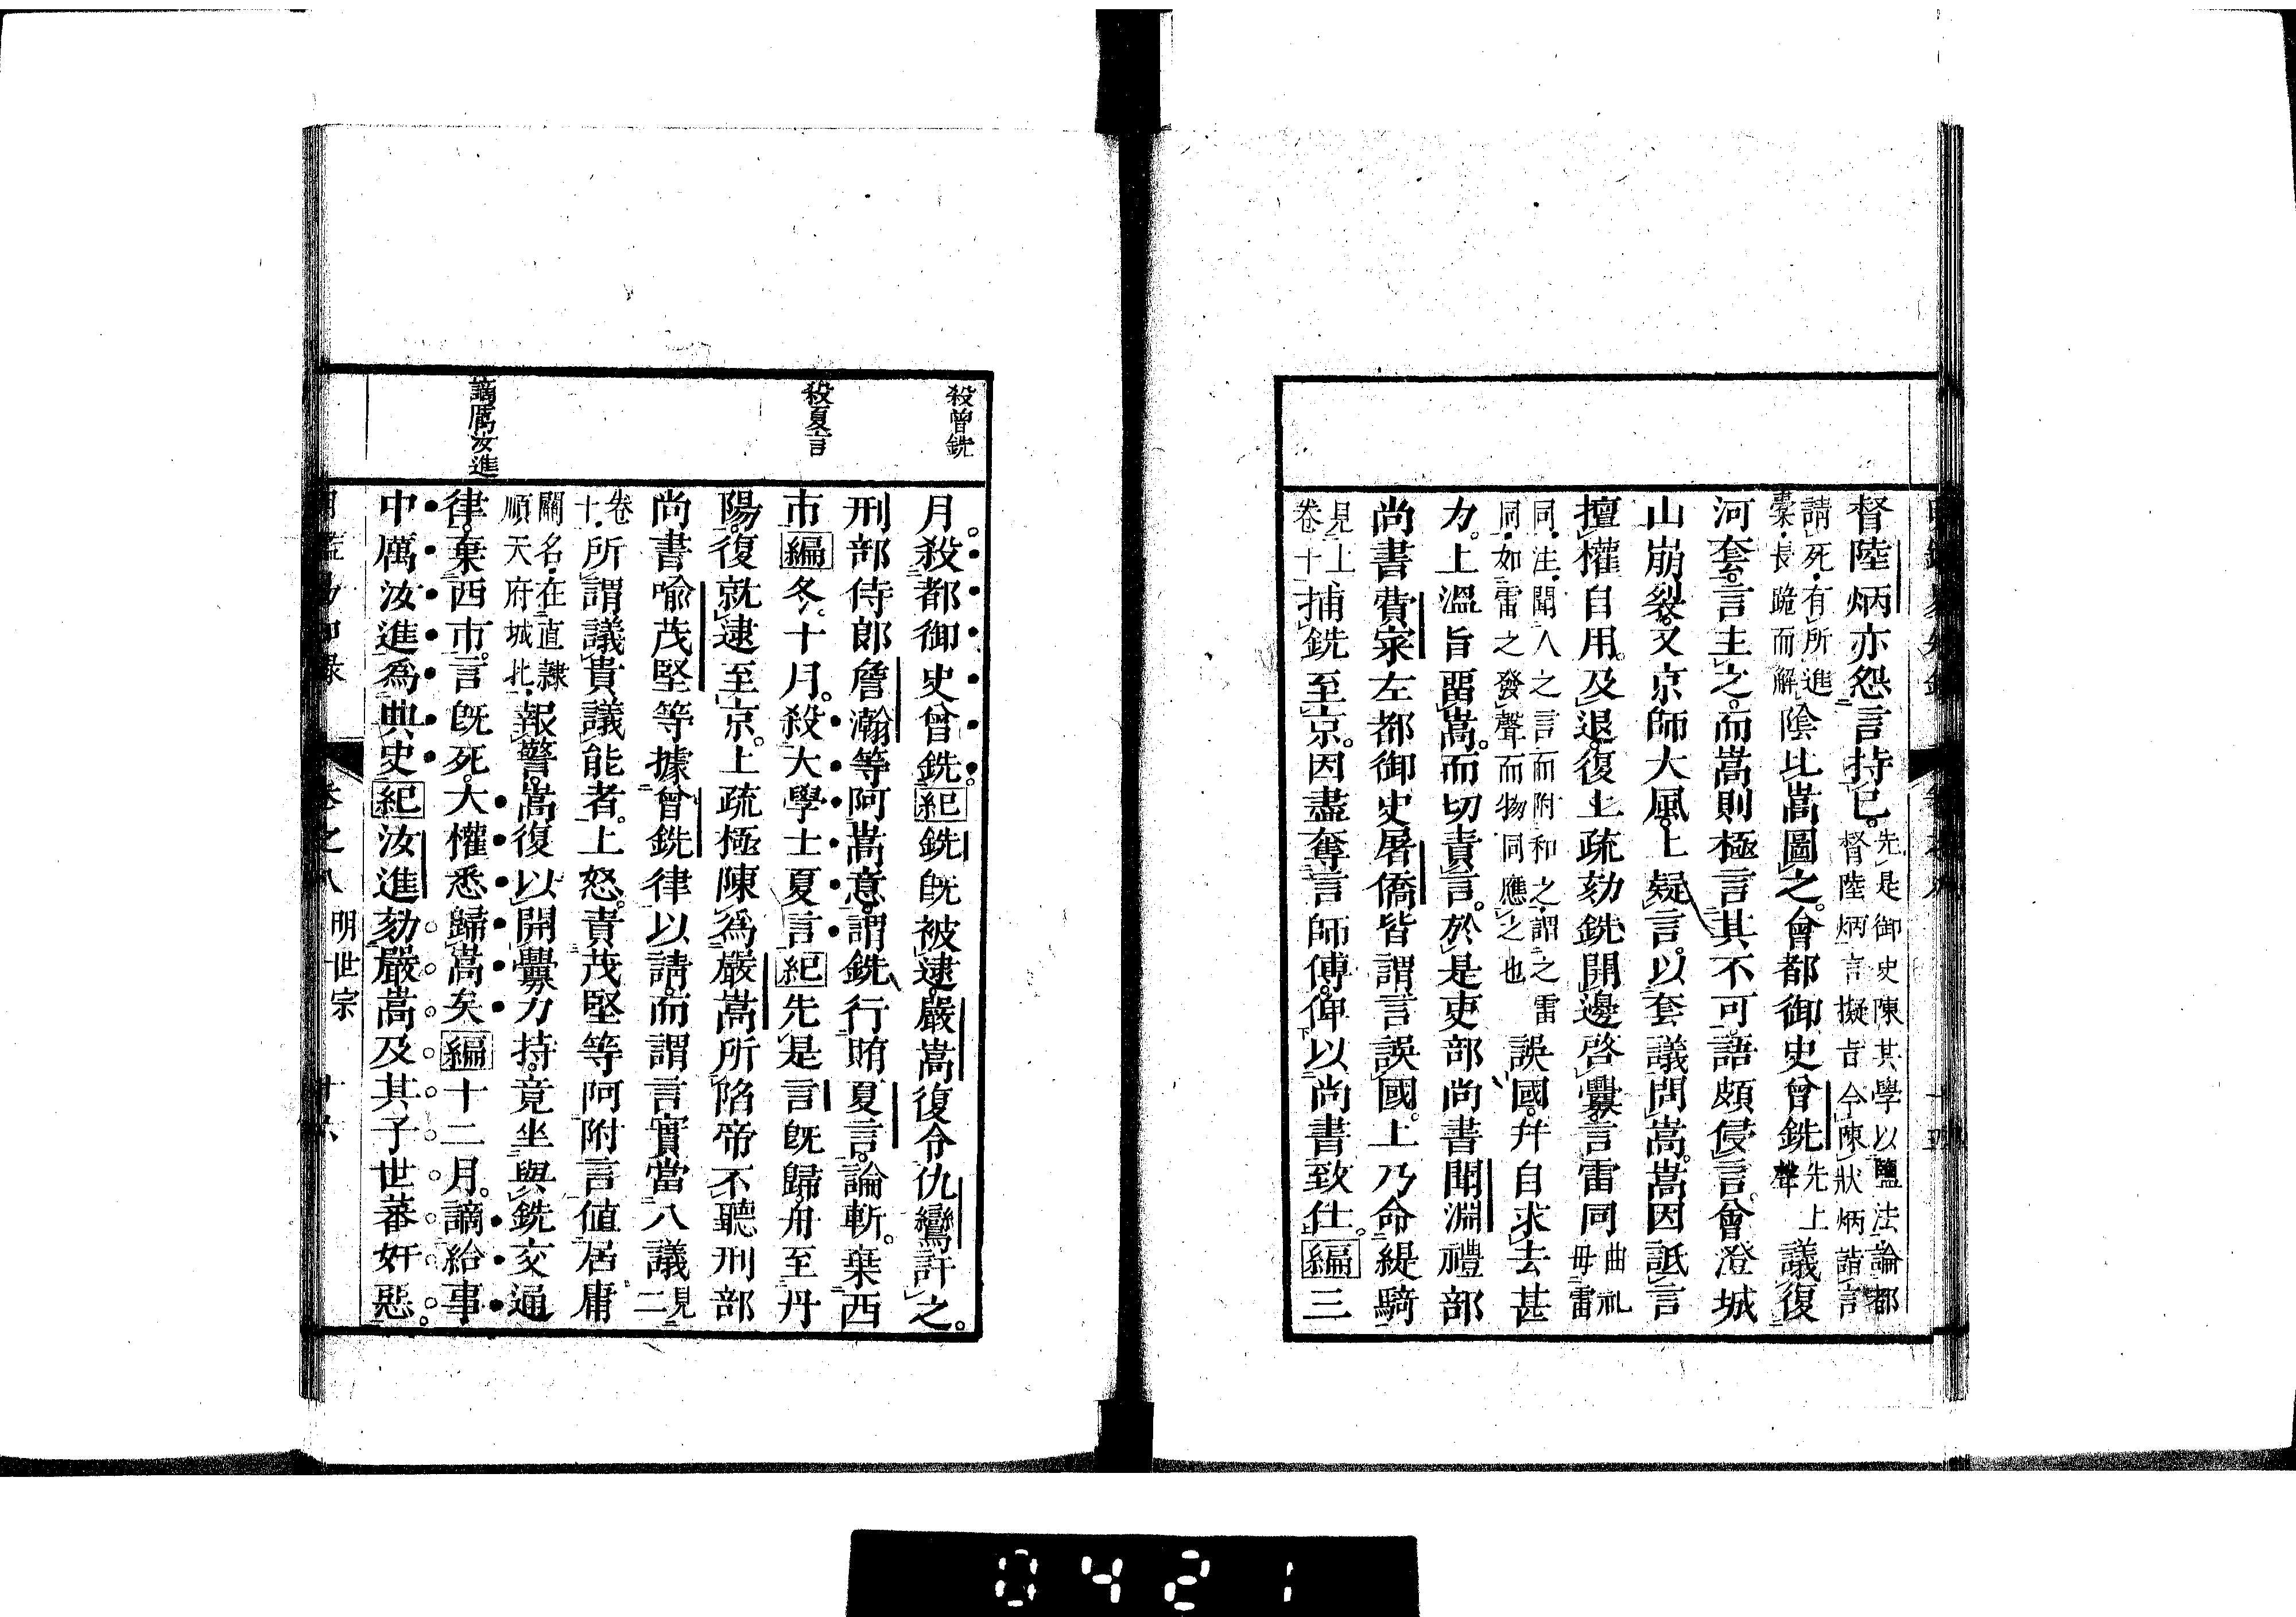 督陸炳亦怨言持已。先是御史陳其學以鹽法論都督陸炳言擬旨令陳狀炳詣言
請死有所進橐長跪而解陰比嵩圖之。會都御史曾銑先上聲議復
河套。言主之。而嵩則極言其不可。語頗侵言。會澄城
山崩裂。又京師大風。上疑言。以套議問嵩。嵩因詆言
擅權自用。及退。復上疏劾銑開邊啓釁。言雷同曲礼毋雷
同注聞人之言而附和之謂之雷同如雷之發聲而物同應之也誤國。幷自求去甚
力。上溫旨留嵩。而切責言。於是吏部尚書聞淵禮部
尚書費寀左都御史屠僑皆謂言誤國。上乃命緹騎
見上卷十一捕銑至京。因盡奪言師傅。俾以尚書致仕。編三
殺曾銑
月。殺都御史曾銑。紀銑旣被逮。嚴嵩復令仇鸞訐之。
刑部侍郎詹瀚等阿嵩意。謂銑行賄夏言。論斬。棄西
殺夏言
市編冬。十月。殺大學士夏言紀先是言旣歸舟至丹
陽。復就逮至京。上疏極陳爲嚴嵩所陷帝不聽刑部
尚書喻茂堅等據曾銑律以請。而謂言實當八議見二
卷十所謂議貴議能者。上怒。責茂堅等阿附言値居庸
關名在直隸順天府城北報警。嵩復以開釁力持。竟坐與銑交通
謫厲汝進
律。棄西市。言旣死。大權悉歸嵩矣編十二月。謫給事
中厲汝進爲典史紀汝進劾嚴嵩及其子世蕃奸惡。
卷之八 明世宗